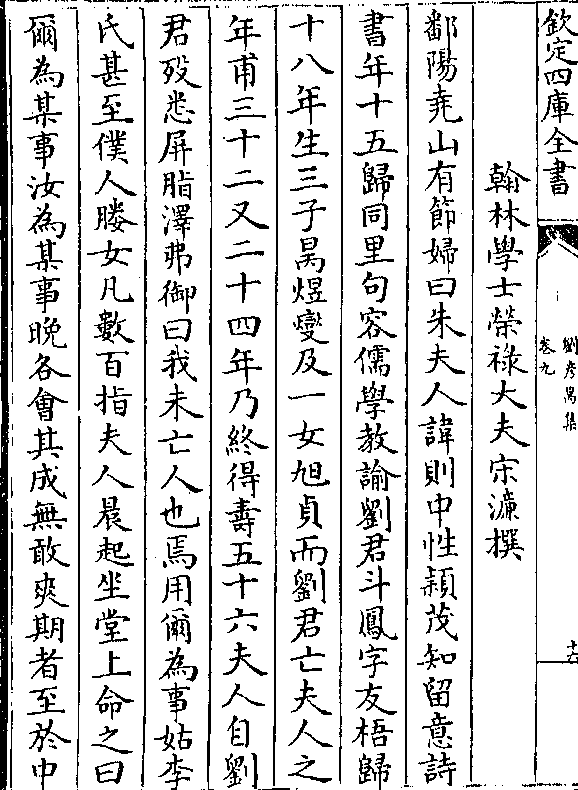 欽定四庫全書
劉彥昺集
卷九
十六
翰林學士榮祿大夫宋濂撰
鄱陽堯山有節婦曰朱夫人諱則中性穎茂知留意詩
書年十五歸同里句容儒學教諭劉君斗鳳字友梧歸
十八年生三子昺煜燮及一女旭貞而劉君亡夫人之
年甫三十二又二十四年乃終得壽五十六夫人自劉
君歿悉屏脂澤弗御曰我未亡人也焉用爾為事姑李
氏甚至僕人媵女凡數百指夫人晨起坐堂上命之曰
爾為某事汝為某事晚各會其成無敢爽期者至於中